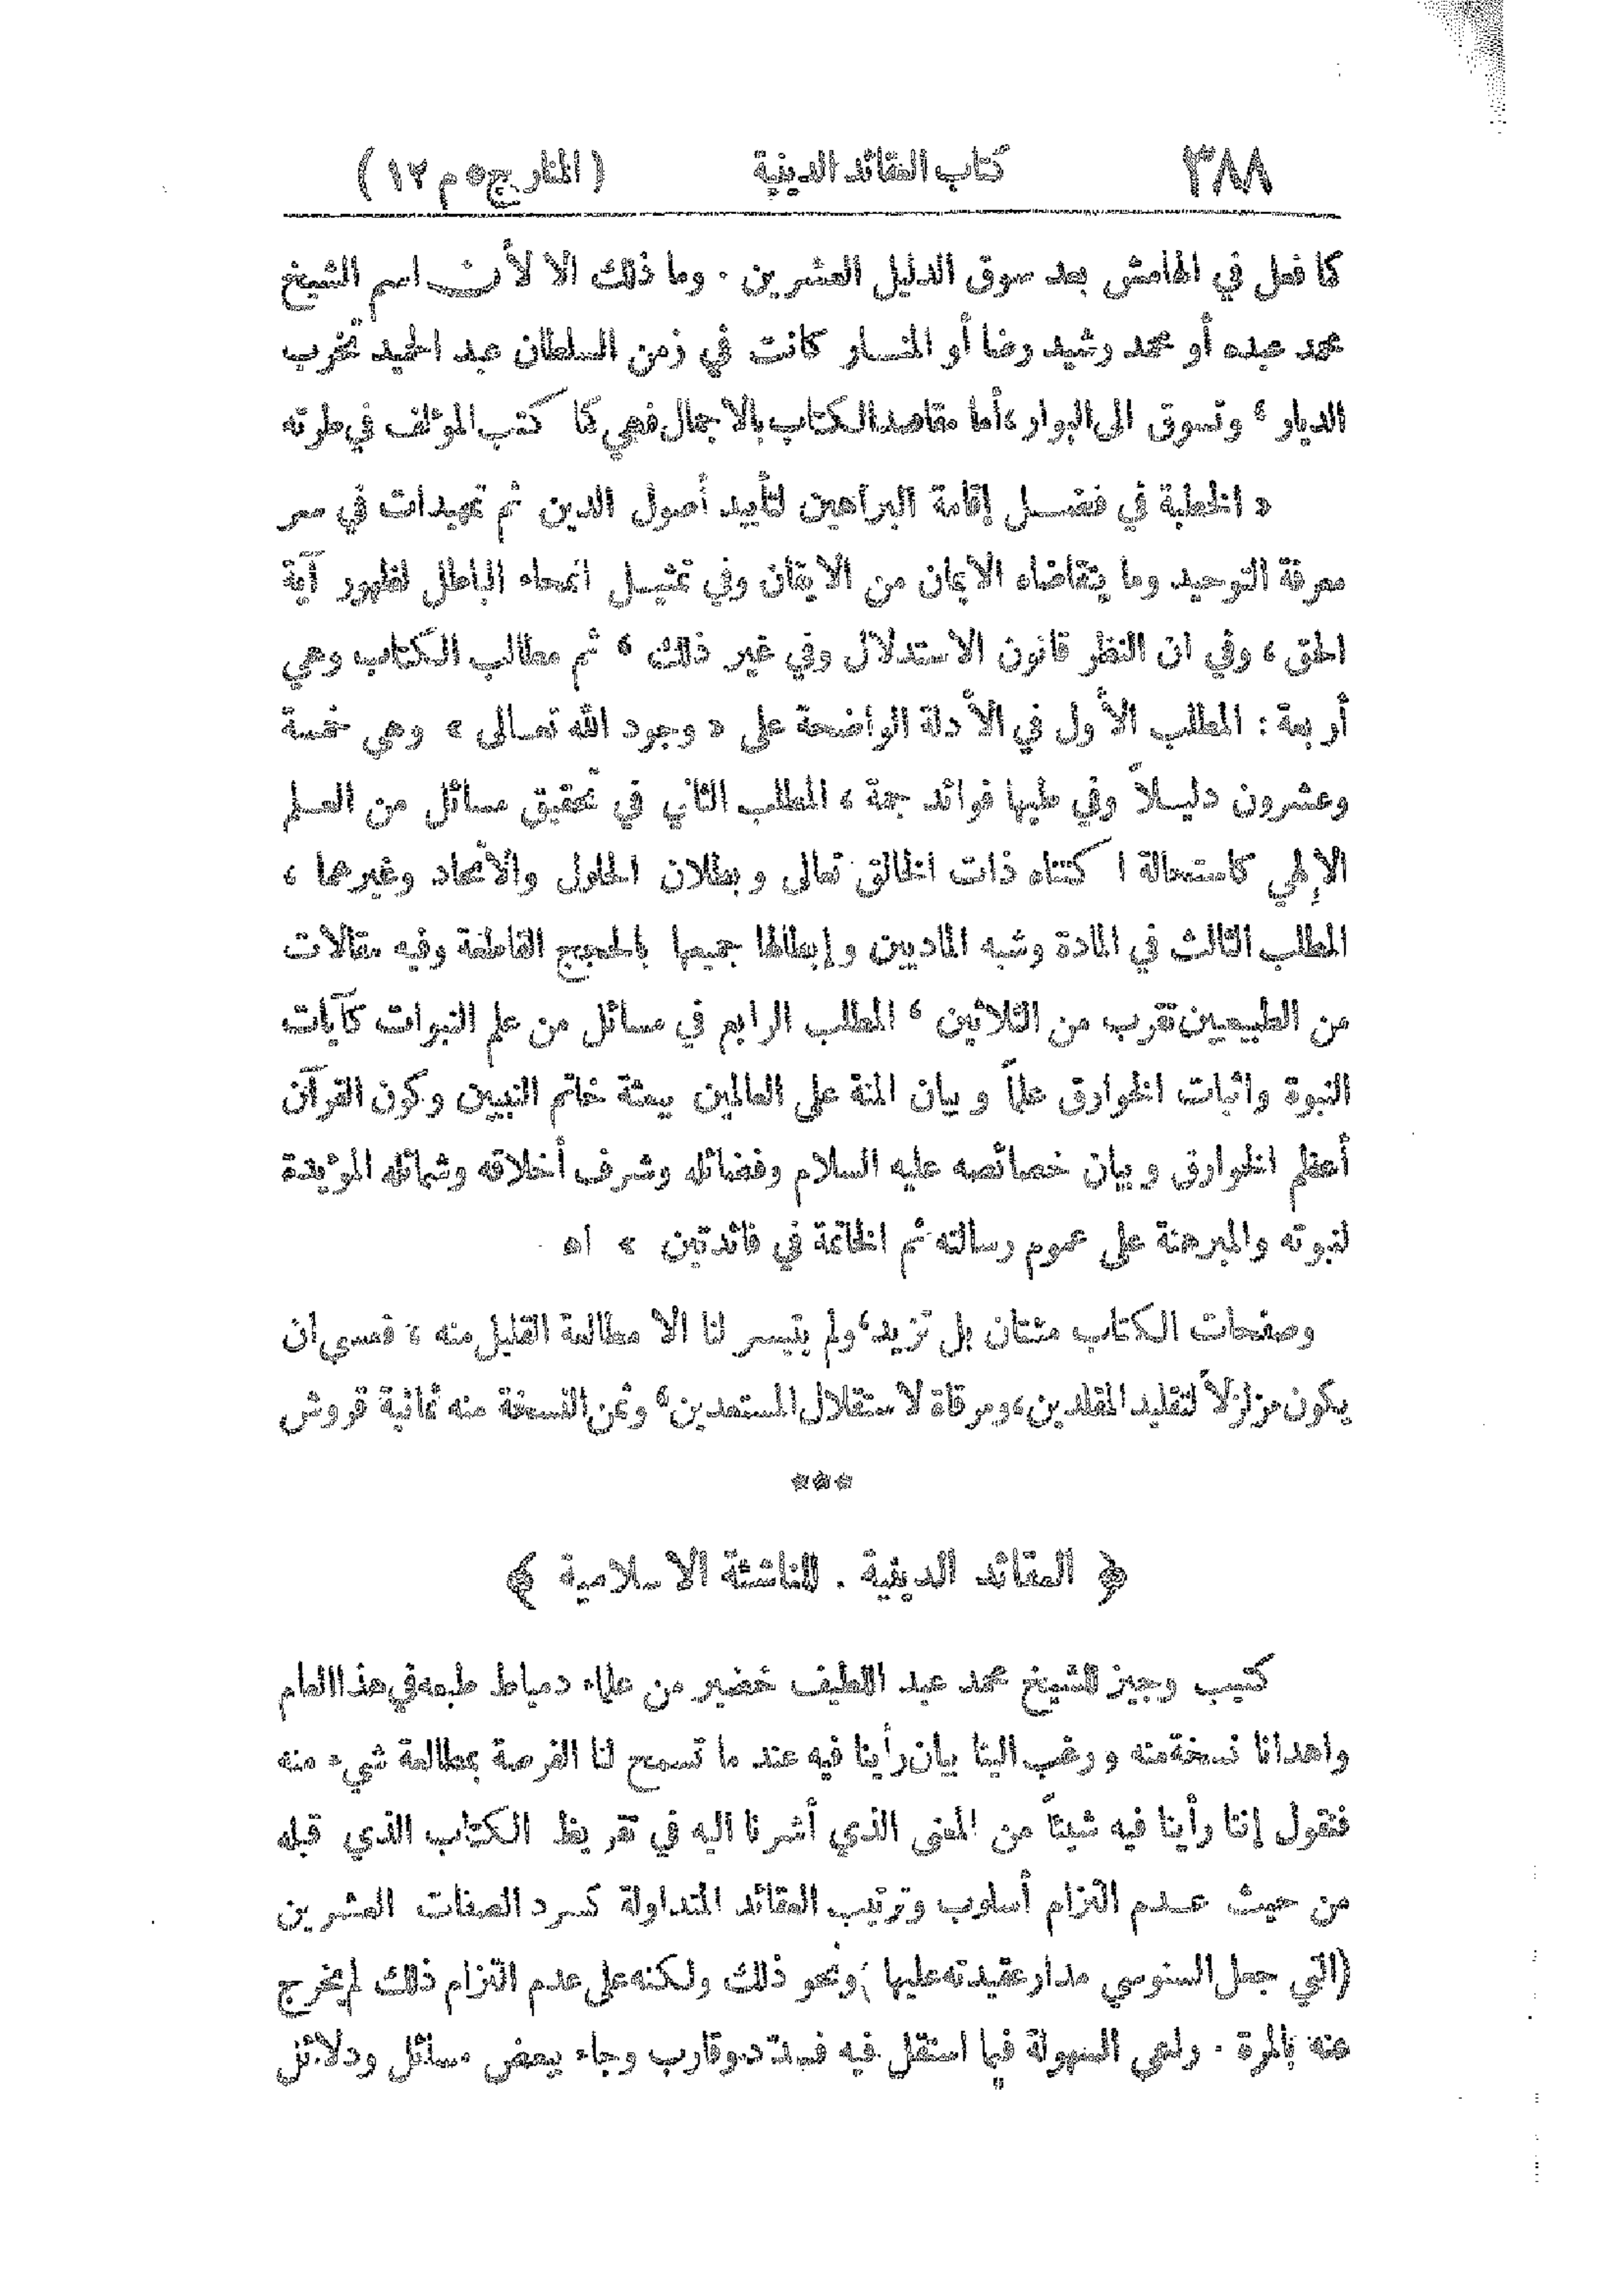 ٣٨٨ كتاب العقائد الدينية ( المنار ج ٥ م ١٢ )
كما فعل في الهامش بعد سوق الدليل العشرين . وما ذلك الا لأن اسم الشيخ
محمد عبده أو محمد رشيد رضا أو المنار كانت في زمن السلطان عبد الحميد تخرب
الديار ، وتسوق الى البوار ، أما مقاصد الكتاب بالاجمال فهي كما كتب المؤلف في طرته
« الخطبة في فضل إقامة البراهين لتأييد أصول الدين ثم تمهيدات في سر
معرفة التوحيد وما يتقاضاه الايمان من الايقان وفي تمثيل انمحاء الباطل لظهور آية
الحق ، وفي ان النظر قانون الاستدلال وفي غير ذلك ، ثم مطالب الكتاب وهي
أربعة : المطلب الأول في الأدلة الواضحة على « وجود الله تعالى » وهي خمسة
وعشرون دليلاً وفي طيها فوائد جمة ، المطلب الثاني في تحقيق مسائل من العلم
الإلهي كاستحالة اكتناه ذات الخالق تعالى وبطلان الحلول والاتحاد وغيرهما ،
المطلب الثالث في المادة وشبه الماديين وإبطالها جميعها بالحجج القاطعة وفيه مقالات
من الطبيعيين تقرب من الثلاثين ، المطلب الرابع في مسائل من علم النبوات كآيات
النبوة واثبات الخوارق علماً وبيان المنة على العالمين ببعثة خاتم النبيين وكون القرآن
أعظم الخوارق وبيان خصائصه عليه السلام وفضائله وشرف أخلاقه وشمائله المؤيدة
لنبوته والمبرهنة على عموم رسالته ثم الخاتمة في فائدتين » اه
وصفحات الكتاب مئتان بل تزيد ، ولم يتيسر لنا الا مطالعة القليل منه ، فعسى ان
يكون مزلزلاً لتقليد المقلدين ، ومرقاة لاستقلال المستعدين ، وثمن النسخة منه ثمانية قروش
***
﴿ العقائد الدينية . للناشئة الاسلامية ﴾
كتيب وجيز للشيخ محمد عبد اللطيف خضير من علماء دمياط طبعه في هذا العام
واهدانا نسخة منه ورغب الينا بيان رأينا فيه عند ما تسمح لنا الفرصة بمطالعة شيء منه
فنقول إننا رأينا فيه شيئاً من المعنى الذي أشرنا اليه في تقريظ الكتاب الذي قبله
من حيث عدم التزام أسلوب وترتيب العقائد المتداولة كسرد الصفات العشرين
(التي جعل السنوسي مدار عقيدته عليها) ونحو ذلك ولكنه على عدم التزام ذلك لم يخرج
عنه بالمرة . ولعي السهولة فيما استقل فيه فسدد وقارب وجاء ببعض مسائل ودلائل